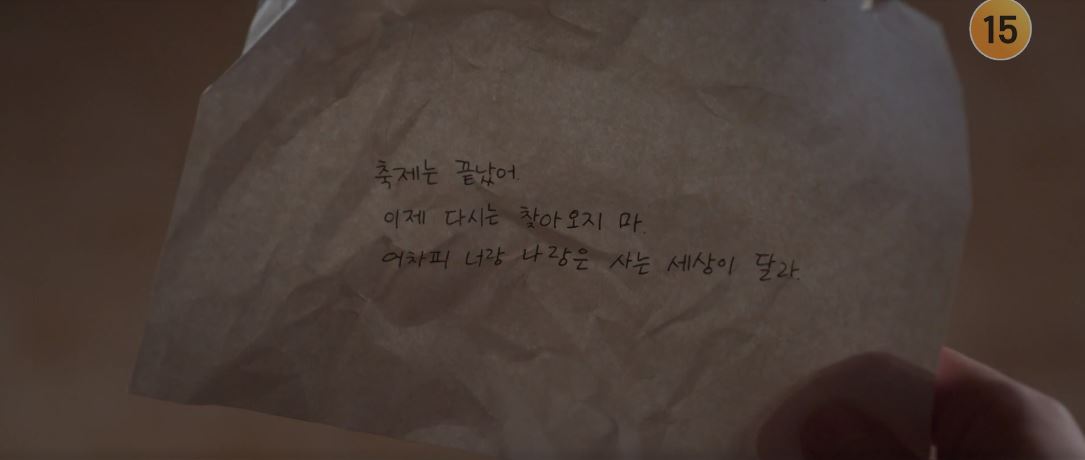 15
축제는 끝났어.
이제 다시는 찾아오지 마.
어차피 너랑 나랑은 사는 세상이 달라.